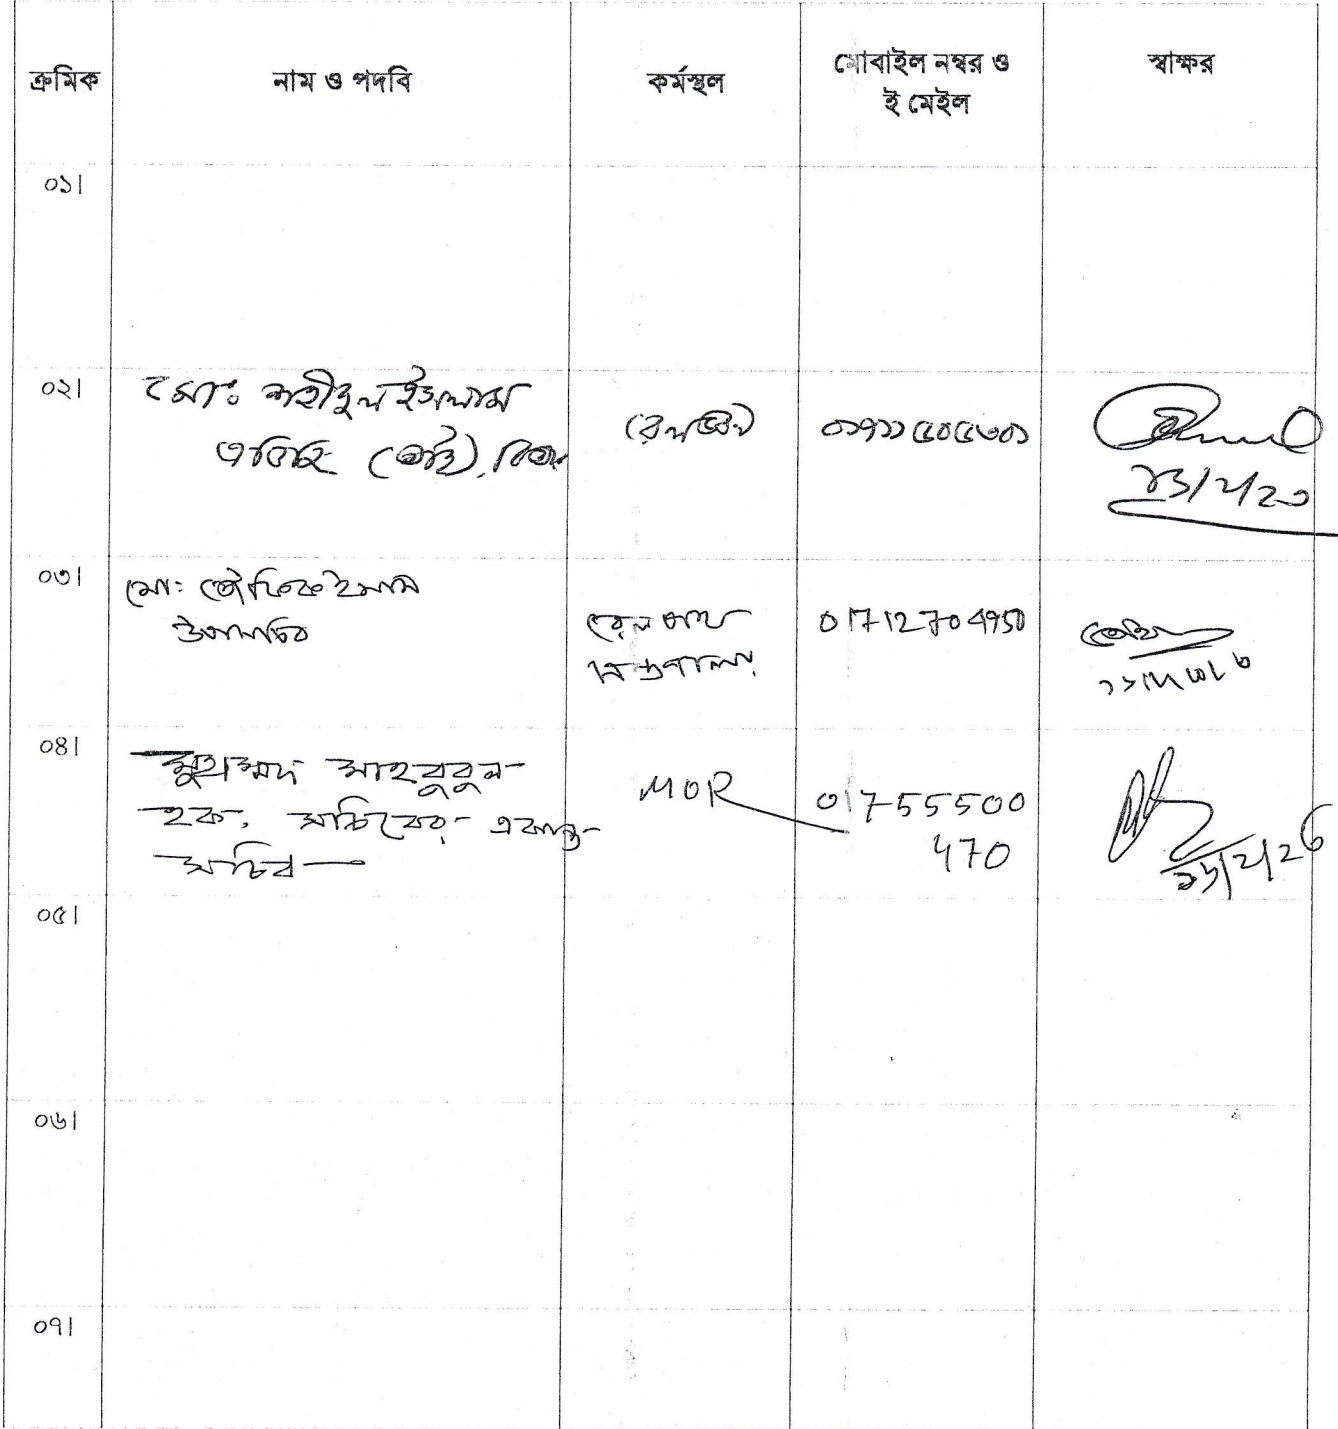 ক্রমিক
নাম ও পদবি
কর্মস্থল
মোবাইল নম্বর ও
ই মেইল
স্বাক্ষর
০১।
০২।
মোঃ শহীদুল ইসলাম
রেলভবন
০৩।
মোঃ তৌফিক ইমাম
উপসচিব
রেলপথ
মন্ত্রণালয়
01712704950
০৪।
মুহাম্মদ মাহবুবুল
হক, সচিবের একান্ত
সচিব
MOR
01755500
470
০৫।
০৬।
০৭।